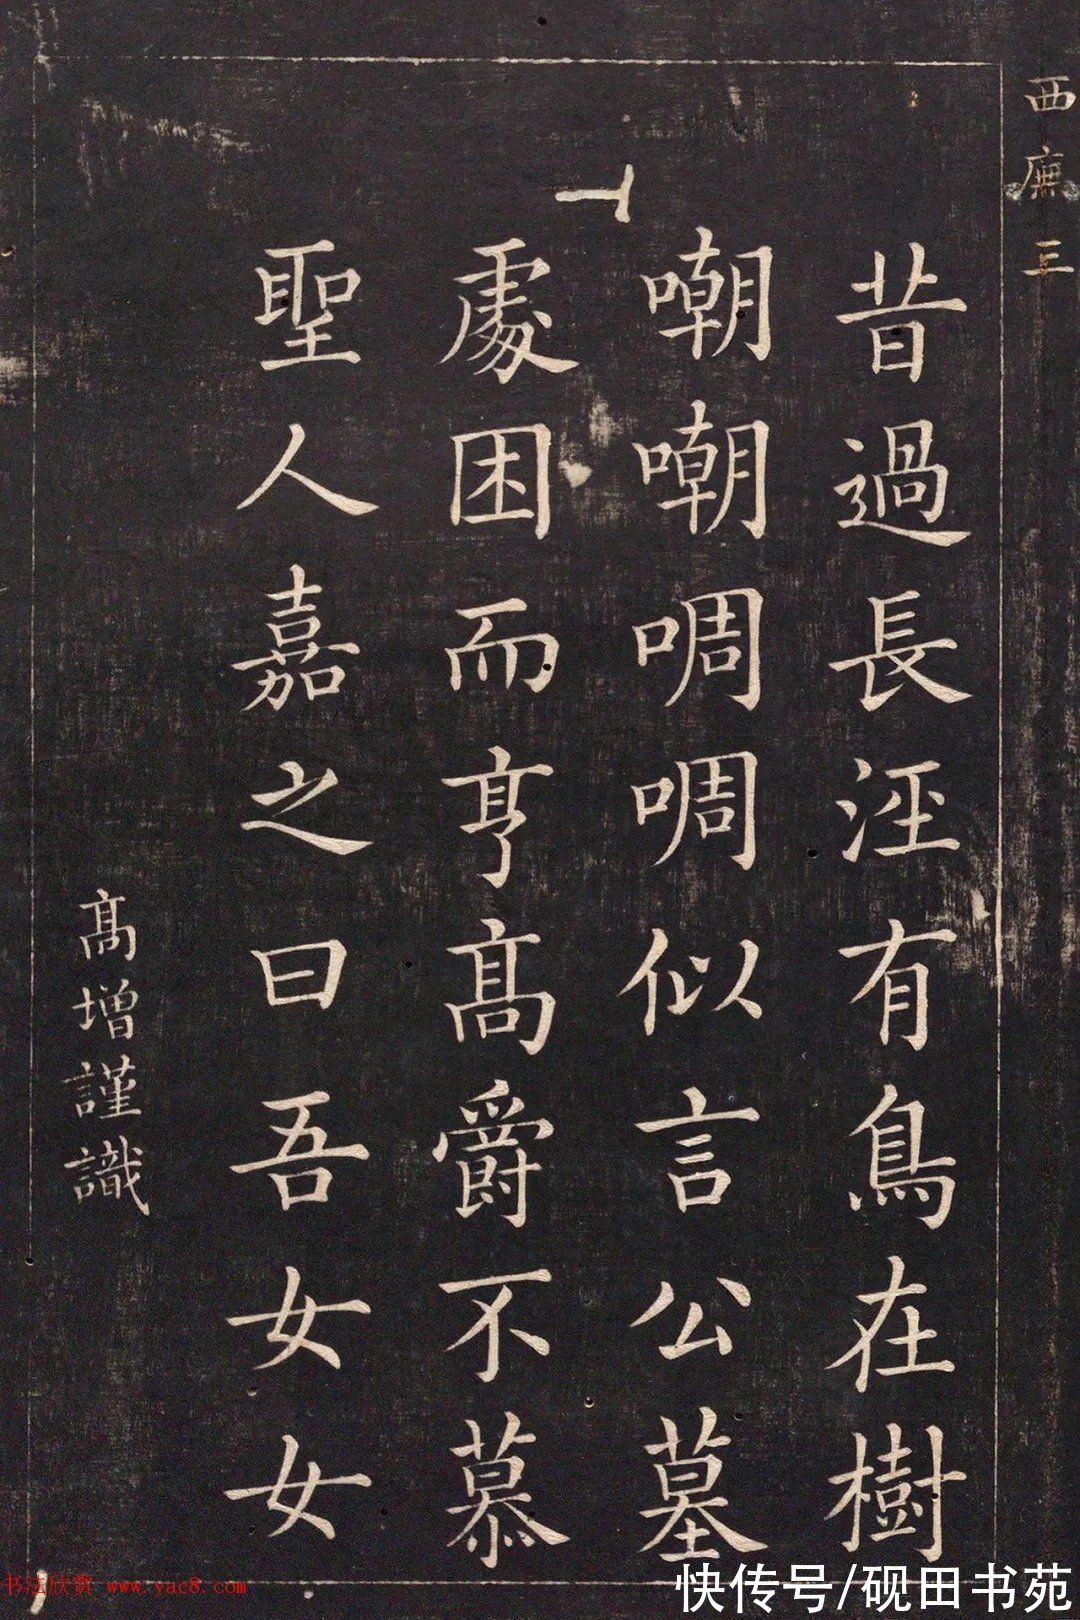 西廡三
昔過長涇有鳥在樹
嘲嘲啁啁似言公墓
處困而亨高爵不慕
聖人嘉之曰吾女女
高增謹識
书法欣赏 www.yac8.com
快传号/砚田书苑